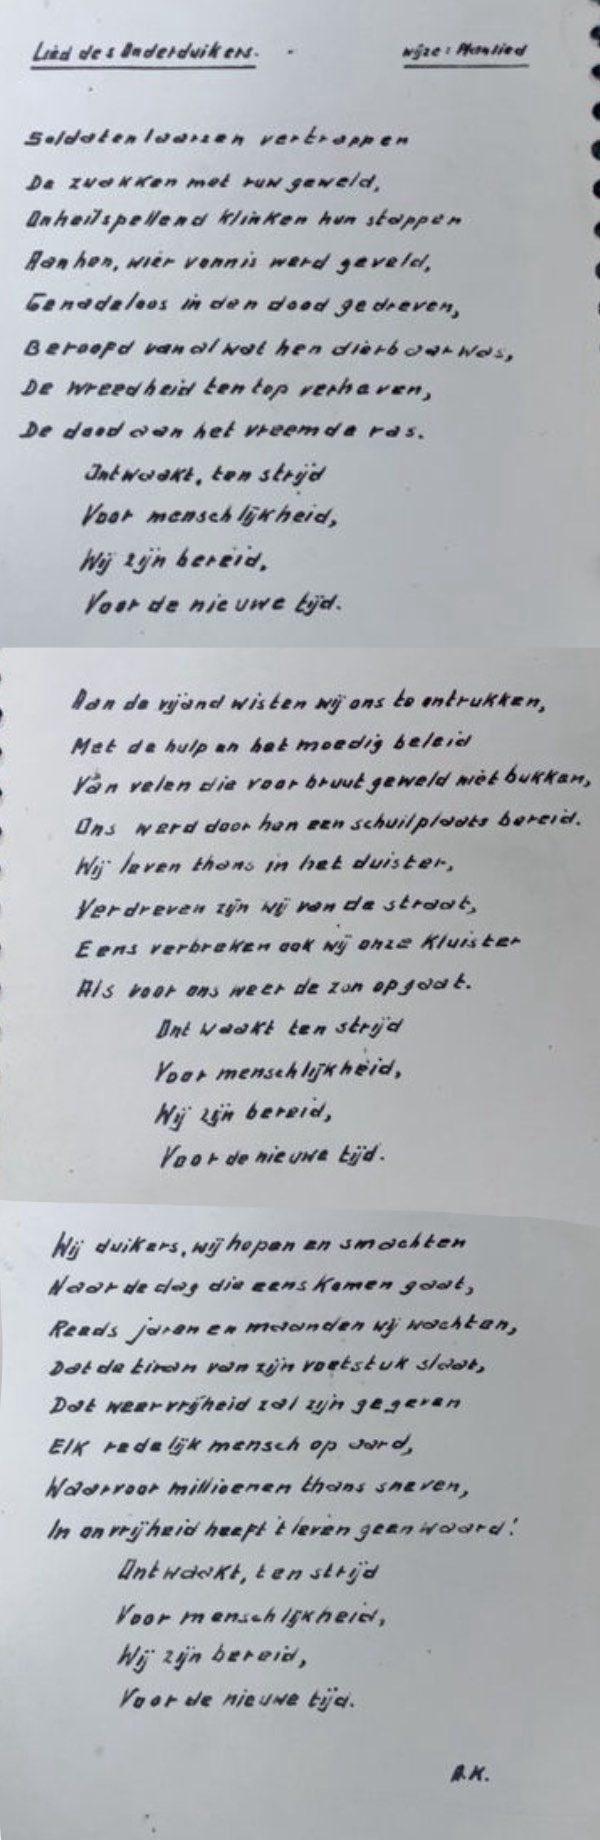 Lied des Onderduikers. wijze: Planlied
Soldatenlaarzen vertrappen
De zwakken met ruw geweld,
Onheilspellend klinken hun stappen
Aan hen, wier vonnis werd geveld,
Genadeloos in den dood gedreven,
Beroofd van al wat hen dierbaar was,
De wreedheid ten top verheven,
De dood aan het vreemde ras.
Ontwaakt, ten strijd
Voor menschlijkheid,
Wij zijn bereid,
Voor de nieuwe tijd.
Aan de vijand wisten wij ons te ontrukken,
Met de hulp en het moedig beleid
Van velen die voor bruut geweld niet bukken,
Ons werd door hen een schuilplaats bereid.
Wij leven thans in het duister,
Verdreven zijn wij van de straat,
Eens verbreken ook wij onze kluister
Als voor ons weer de zon opgaat.
Ontwaakt ten strijd
Voor menschlijkheid,
Wij zijn bereid,
Voor de nieuwe tijd.
Wij duikers, wij hopen en smachten
Naar de dag die eens komen gaat,
Reeds jaren en maanden wij wachten,
Dat de tiran van zijn voetstuk slaat,
Dat weer vrijheid zal zijn gegeven
Elk redelijk mensch op aard,
Waarvoor millioenen thans sneven,
In onvrijheid heeft 't leven geen waard!
Ontwaakt, ten strijd
Voor menschlijkheid,
Wij zijn bereid,
Voor de nieuwe tijd.
A.K.